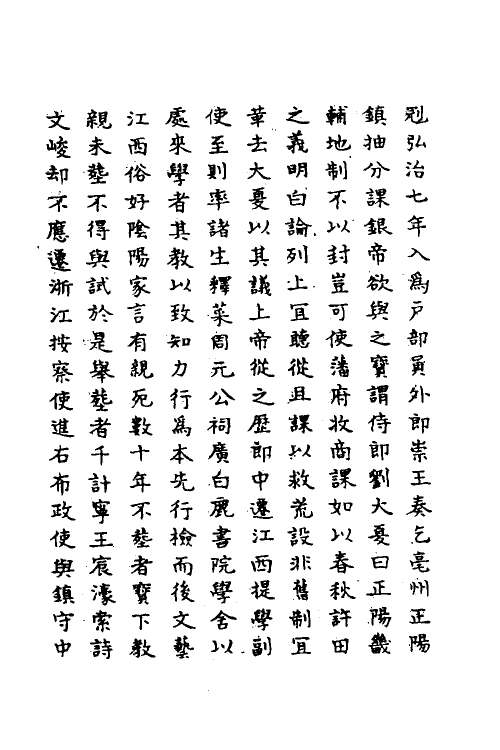 剋弘治七年入為戶部員外郎崇王奏乞亳州正陽
鎮抽分課銀帝欲與之寶謂侍郎劉大夏曰正陽畿
輔地制不以封豈可使藩府收商課如以春秋許田
之義明白論列上冝聽從且課以救荒設非舊制冝
革去大夏以其議上帝從之歴郎中遷江西提學副
使至則率諸生釋菜周元公祠廣白鹿書院學舍以
處來學者其教以致知力行為本先行檢而後文藝
江西俗好陰陽家言有親死數十年不塟者寶下教
親未塟不得與試於是舉塟者千計寧王宸濠索詩
文峻却不應遷浙江按察使進右布政使與鎮守中